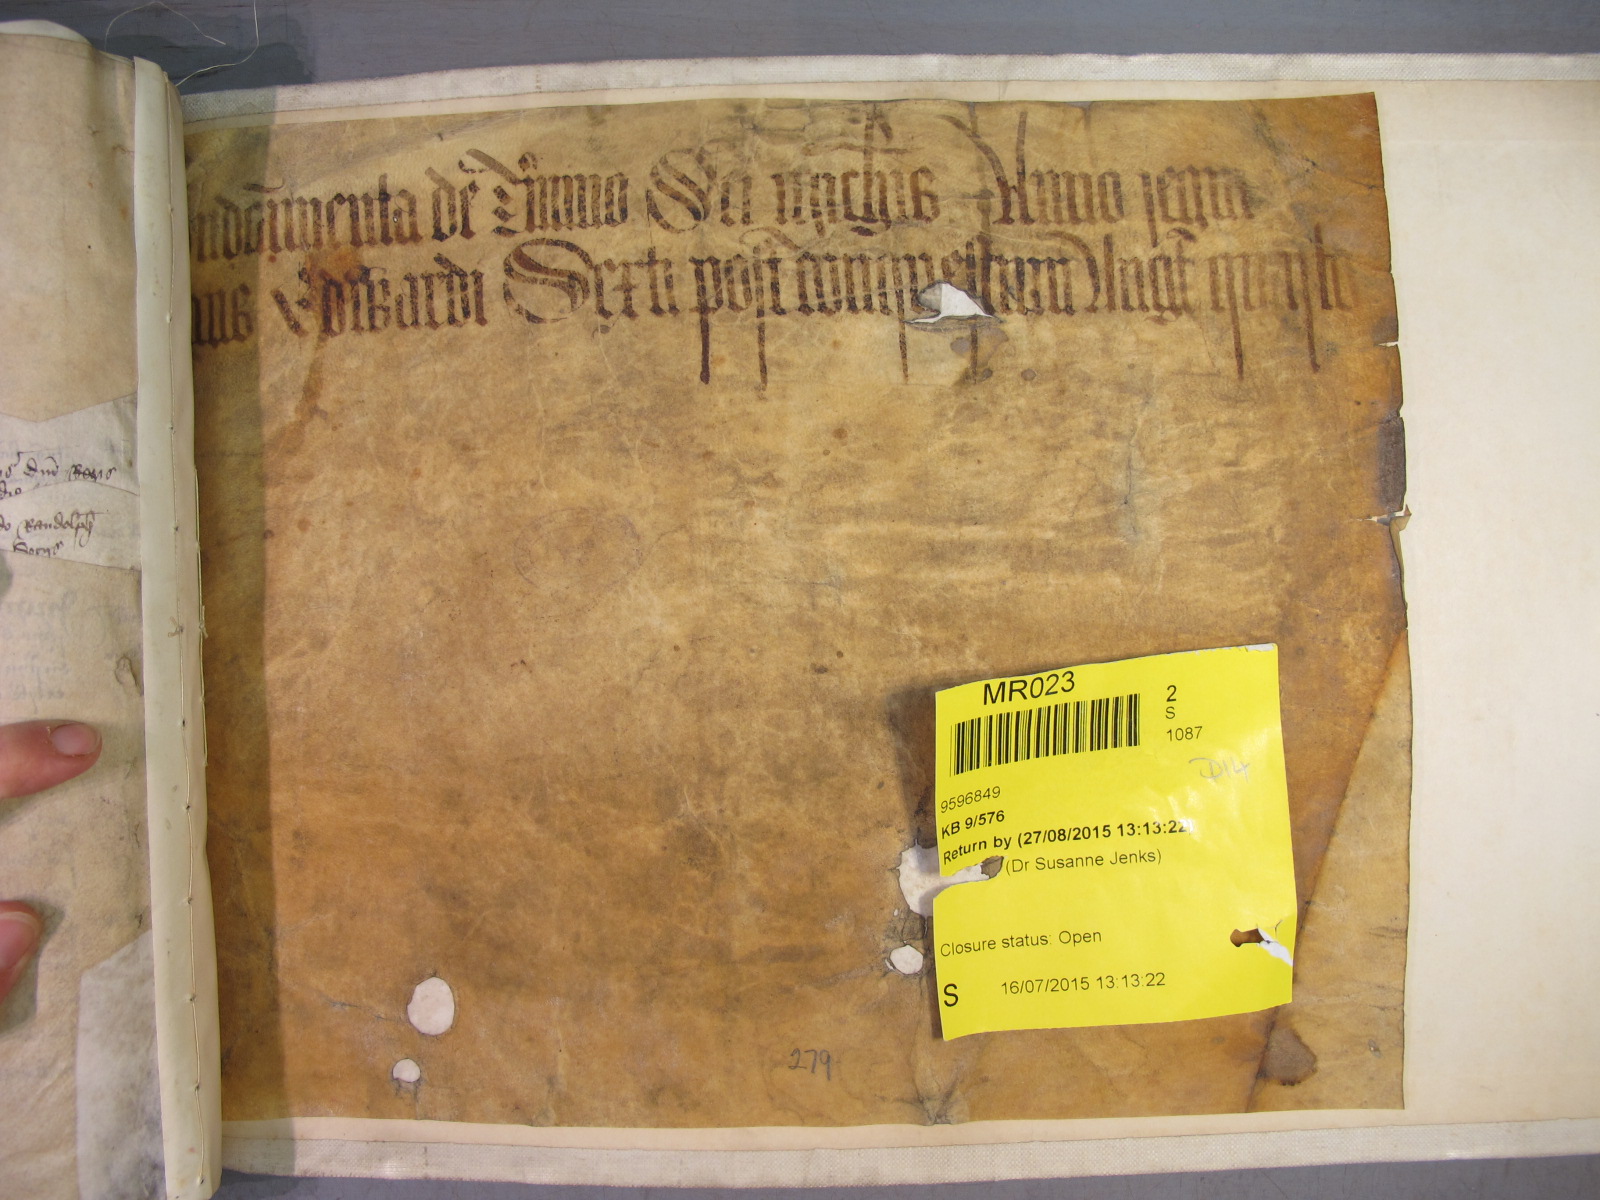 Indictamenta de Termino Sci Michis Anno regni
Regis Edwardi Sexti post conquestum Anglie quarto
dni Regis
Randolph
MR023
2
S
1087
D14
9596849
KB 9/576
Return by (27/08/2015 13:13:22)
(Dr Susanne Jenks)
Closure status: Open
S 16/07/2015 13:13:22
279